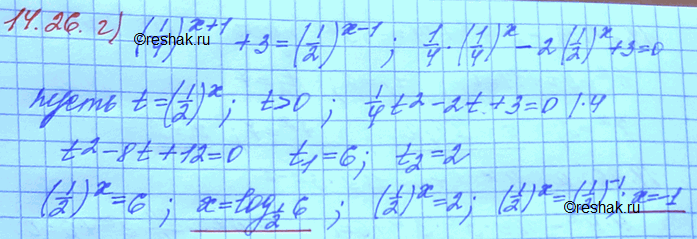 14.26. г) (1/4)^(x+1) + 3 = (1/2)^(x-1) ; 1/4 · (1/4)^x − 2(1/2)^x + 3 = 0
©reshak.ru ©reshak.ru
пусть t = (1/2)^x ; t > 0 ; 1/4 t² − 2t + 3 = 0 | · 4
t² − 8t + 12 = 0 t₁ = 6 ; t₂ = 2
(1/2)^x = 6 ; x = log_(1/2) 6 ; (1/2)^x = 2 ; (1/2)^x = (1/2)^(-1) ; x = −1
©reshak.ru ©reshak.ru